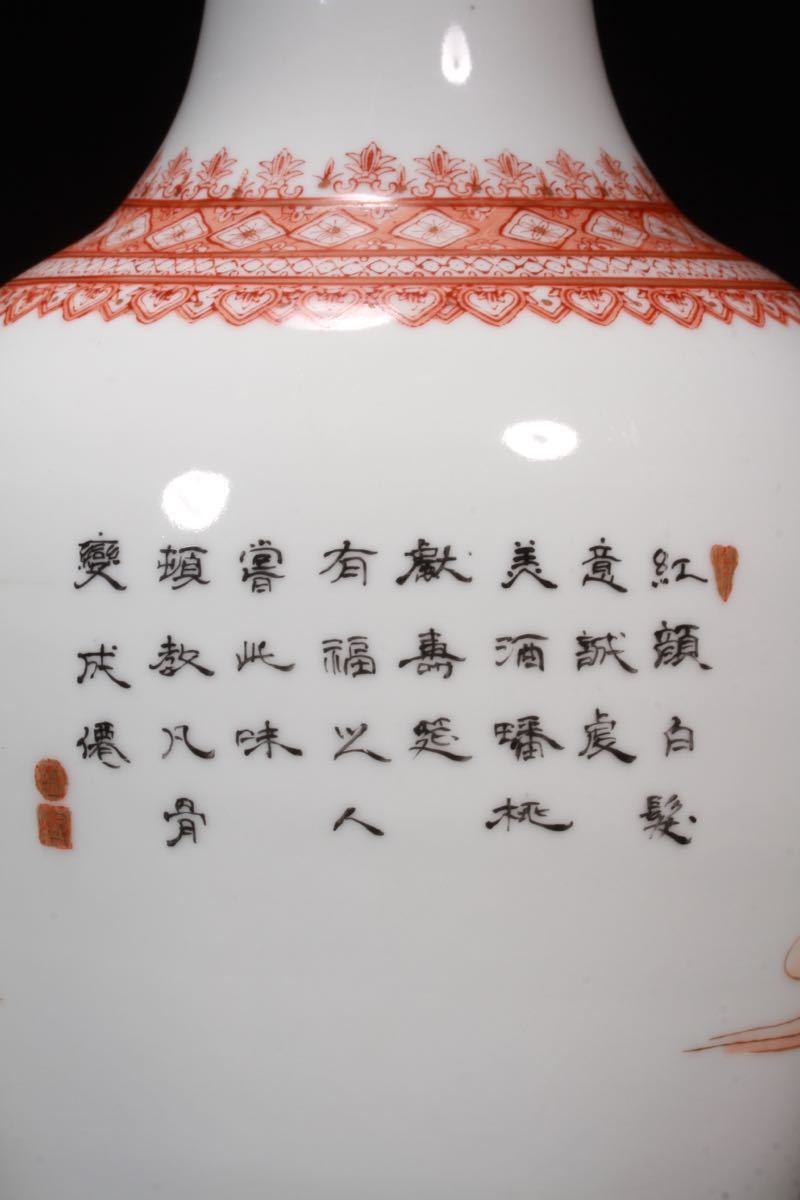 紅顏白髮
意誠虔
美酒蟠桃
獻壽筵
有福以人
嘗此味
頓教凡骨
變成僊